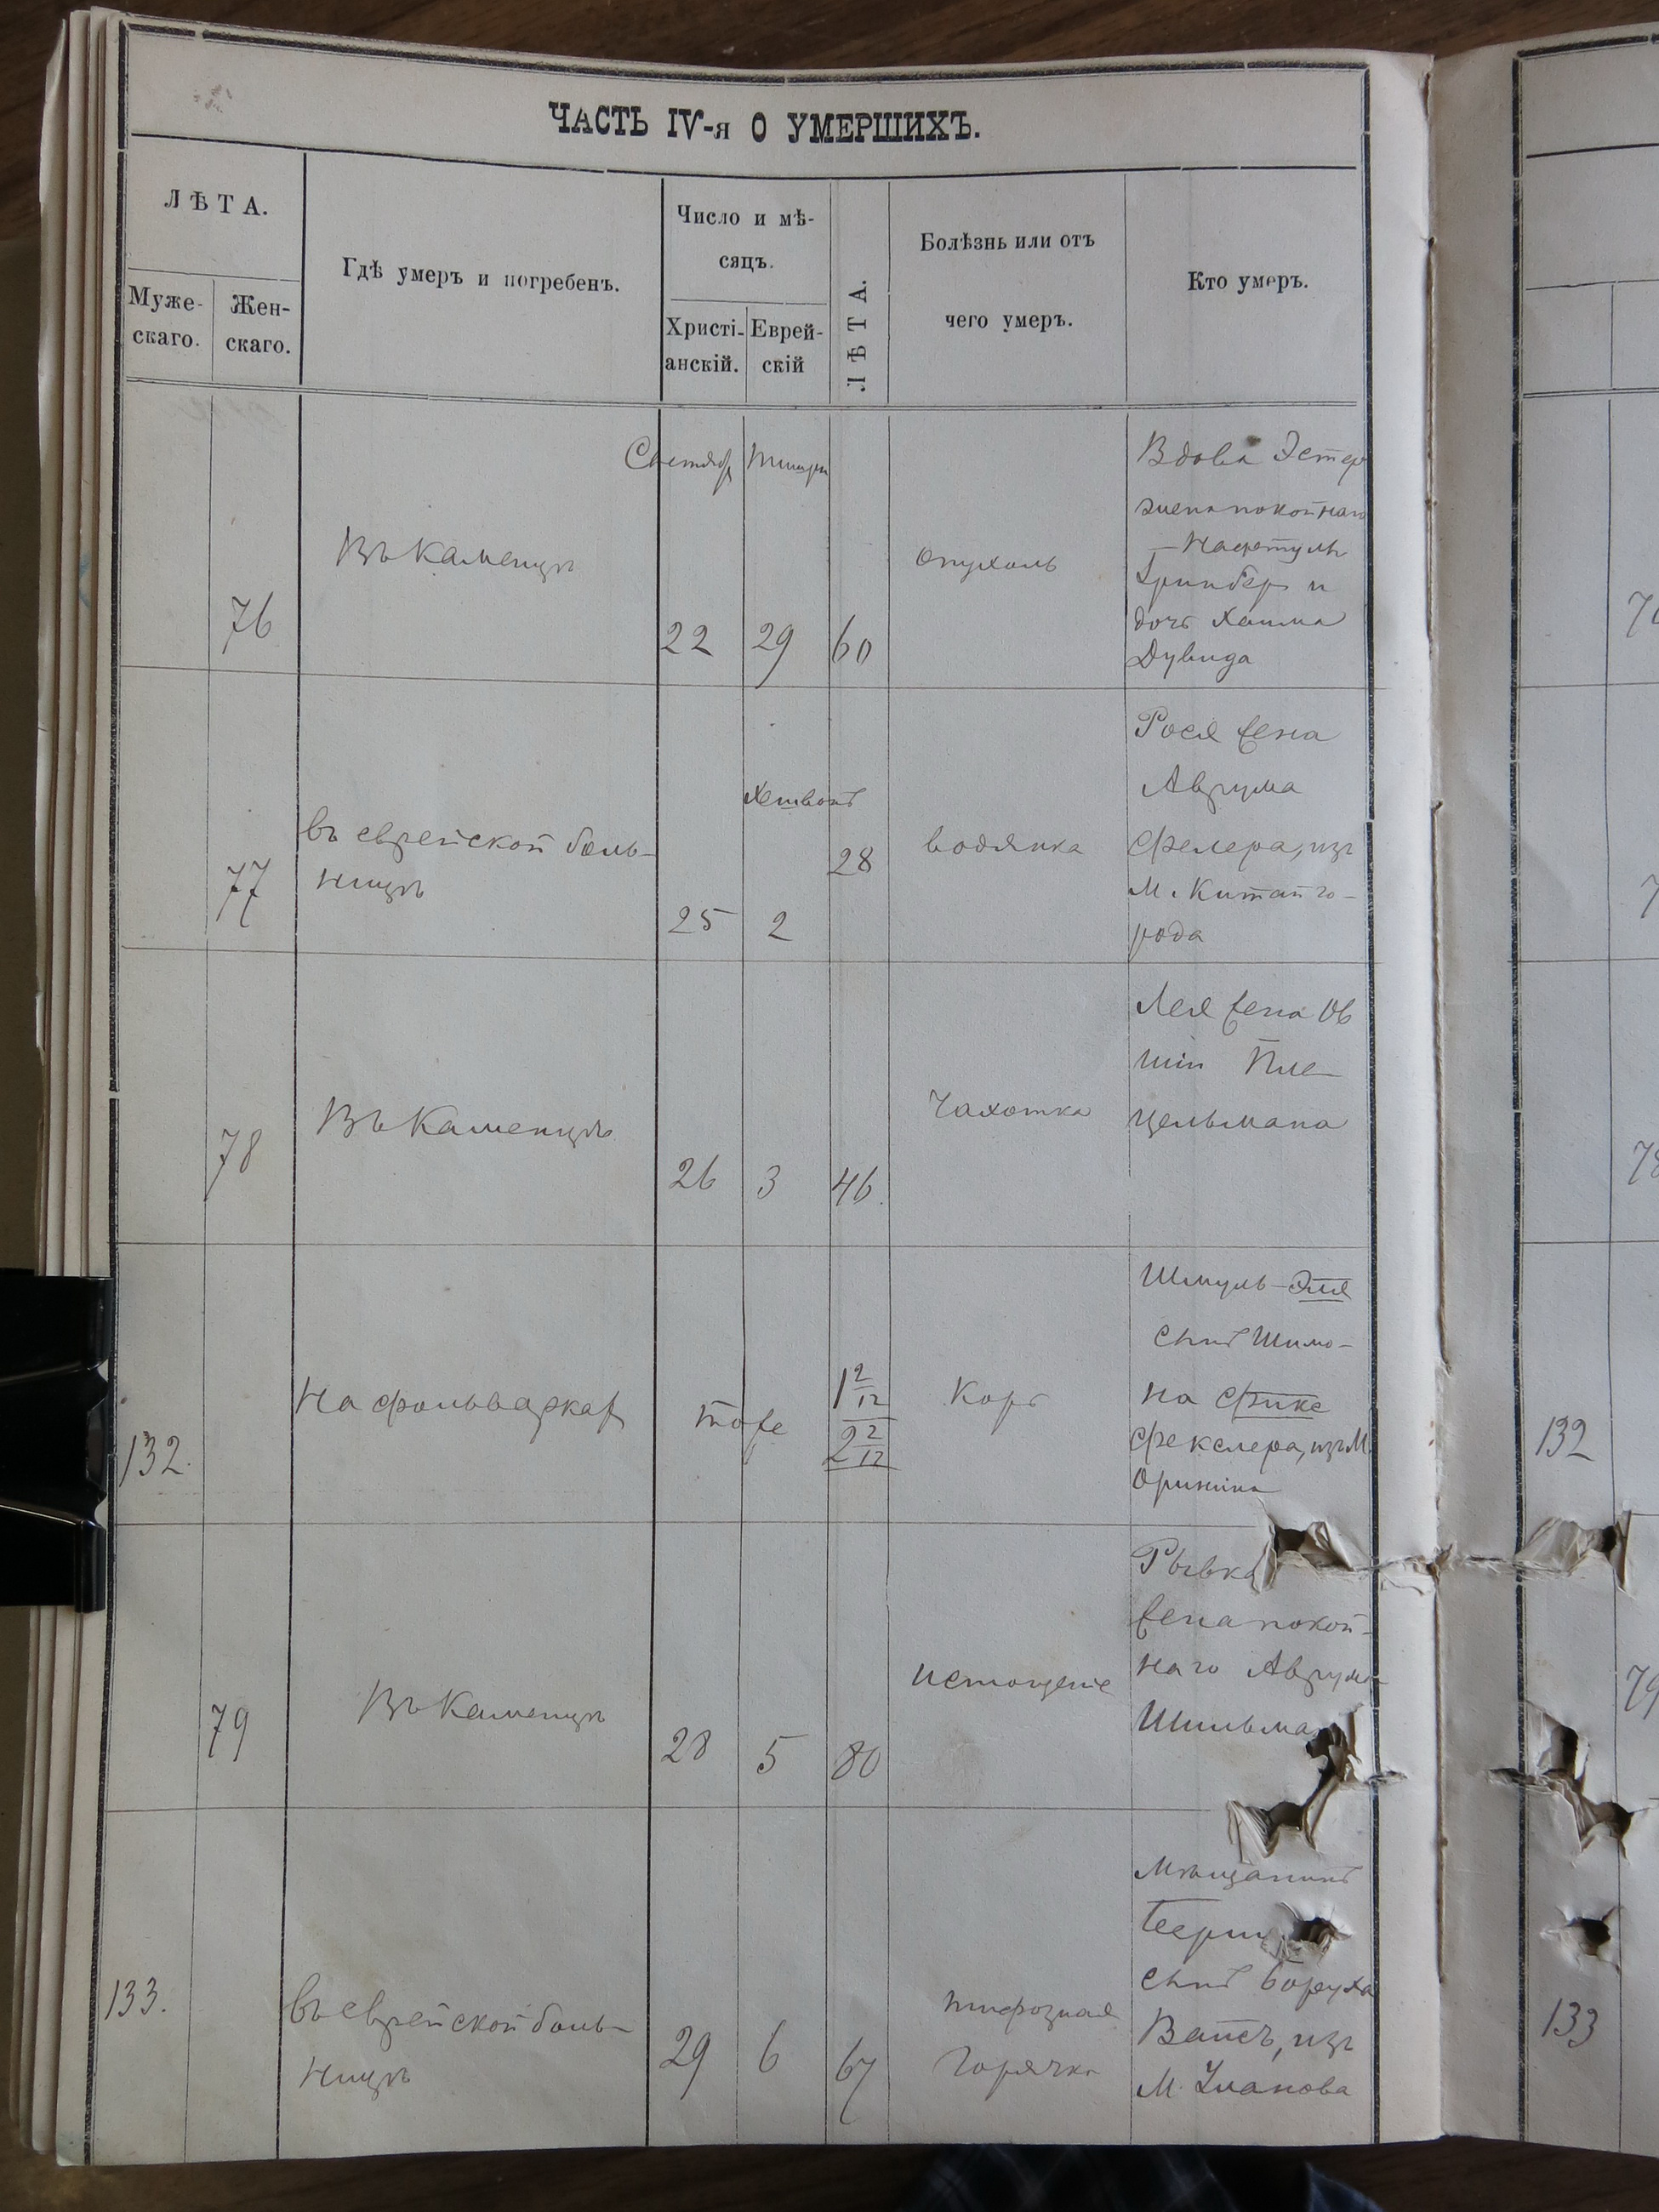 ЧАСТЬ IV-я О УМЕРШИХЪ.
ЛѢТА.
Муже-
скаго.
Жен-
скаго.
Гдѣ умеръ и погребенъ.
Число и мѣ-
сяцъ.
Христі-
анскій.
Еврей-
скій
ЛѢТА.
Болѣзнь или отъ
чего умеръ.
Кто умеръ.
76
Въ Каменцѣ
Сентябр
Тишри
22
29
60
опухоль
Вдова Эстер
жена покойнаго
Нафтулы
Гринбер и
дочь Хаима
Дувида
77
въ еврейской боль-
ницѣ
Хешвонъ
25
2
28
водянка
Рося жена
Аврума
Фелера, изъ
М. Китайго-
рода
78
Въ Каменцѣ
26
3
46
Чахотка
Лея жена Ов
шіи Пле
цельмана
132.
На фольваркахъ
тоже
1 2/12
2 2/12
Корь
Шмуль-Эля
сынъ Шимо-
на Фикс
Фекслера, изъ М.
Оринина
79
Въ Каменцѣ
28
5
80
истощеніе
Рывка
жена покой-
наго Аврума
Шильма
133.
въ еврейской боль-
ницѣ
29
6
67
тифозная
горячка
Мѣщанинъ
сынъ Боруха
изъ
М. Уланова
132
133